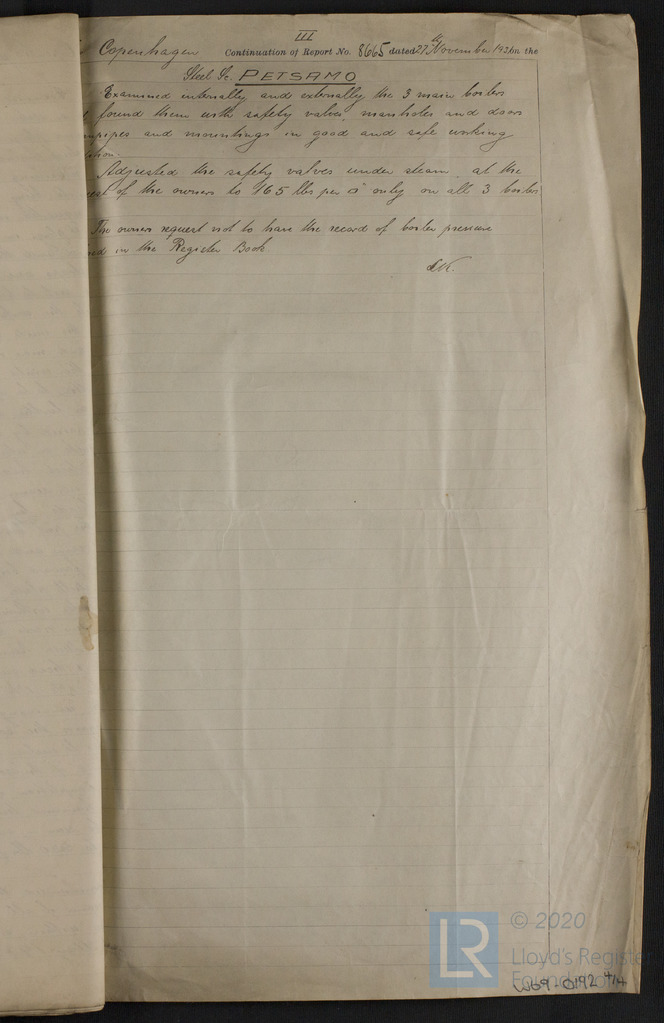 III
Copenhagen Continuation of Report No. 8665 dated 27th November 192 on the
Steel Sc. PETSAMO
Examined internally and externally the 3 main boilers
found them with safety valves, manholes and doors
pipes and mountings in good and safe working
Adjusted the safety valves under steam at the
of the owners to 165 lbs per □" only on all 3 boilers
The owners request not to have the record of boiler pressure
in the Register Book
© 2020
LR
Lloyd's Register
Foundation
W69-0192 4/4